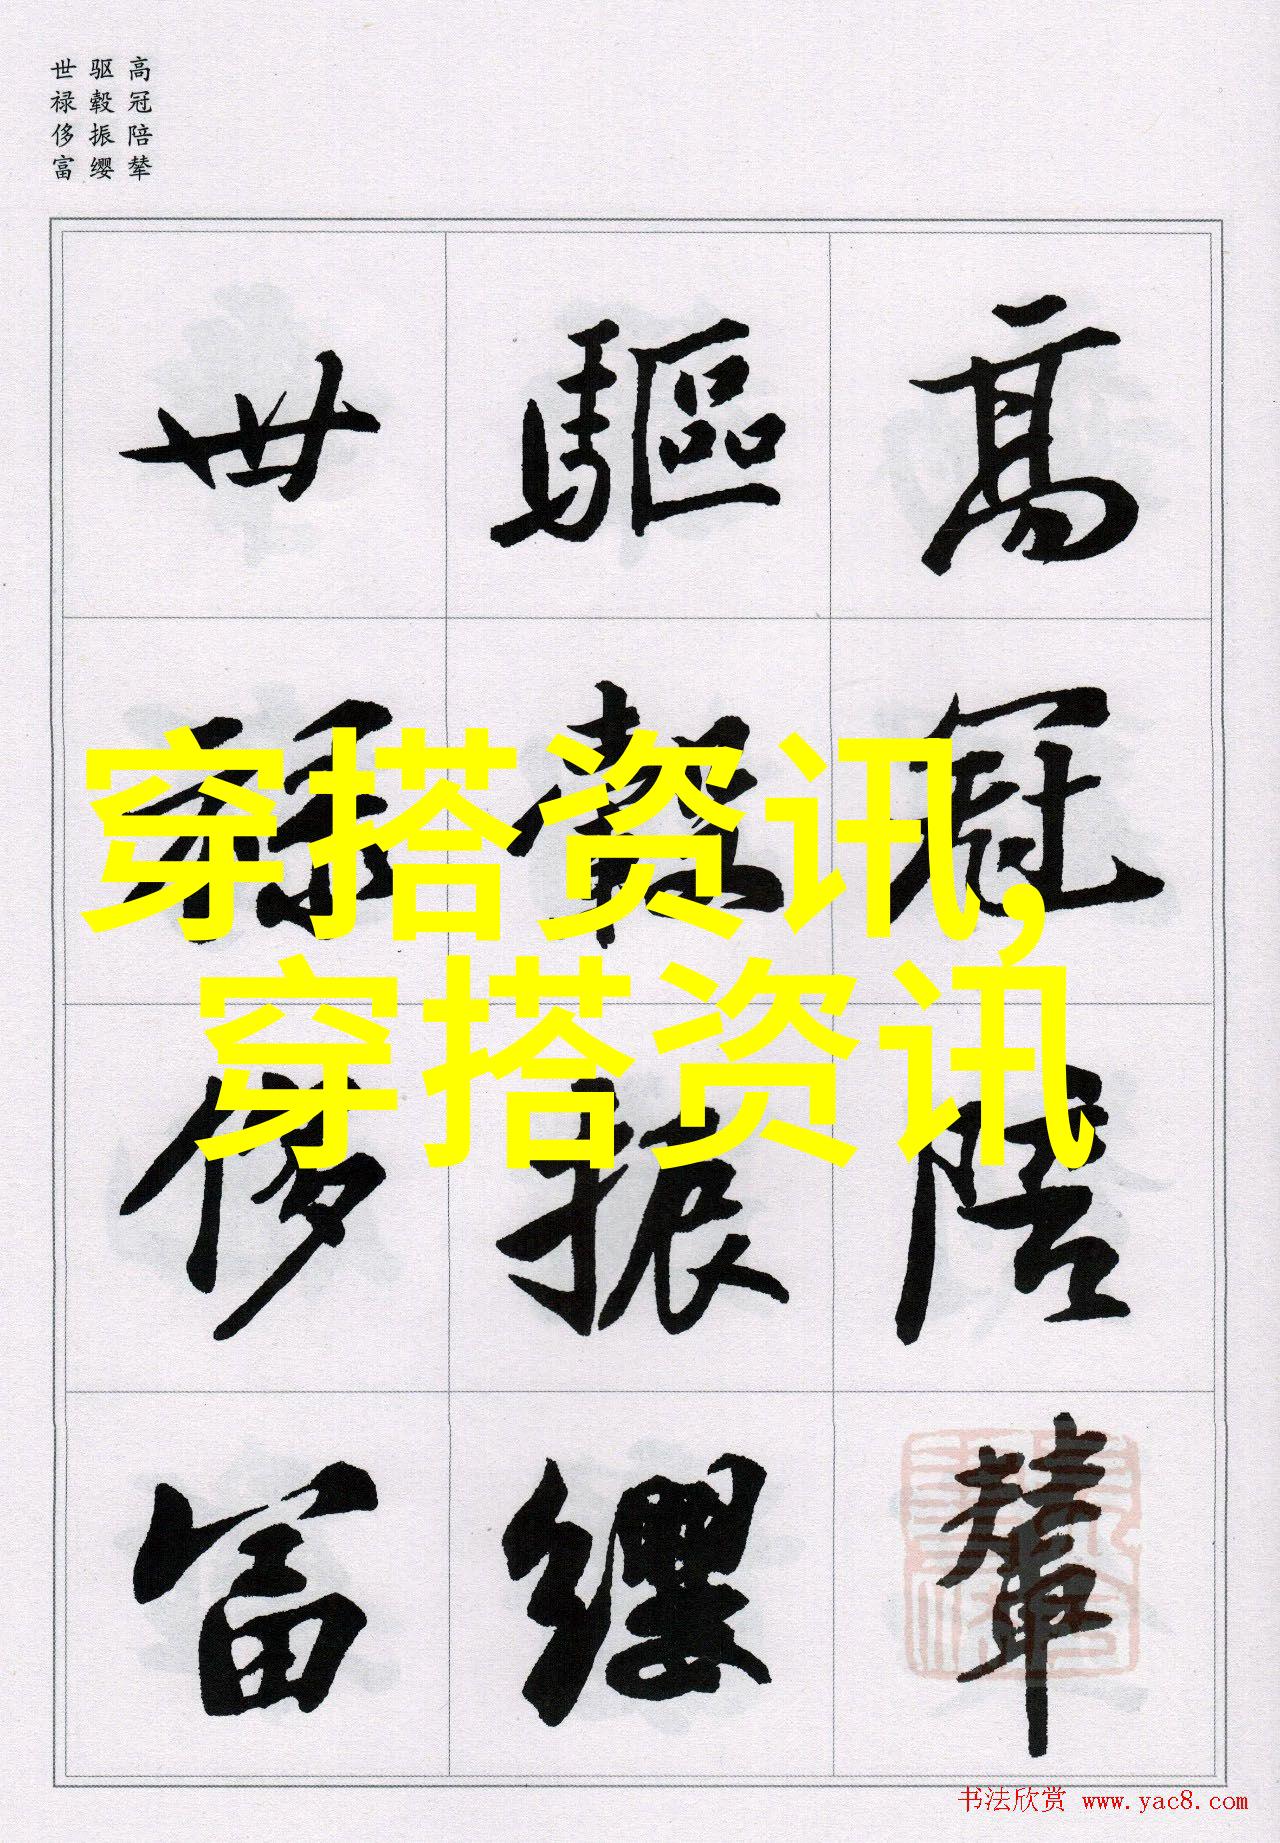 高冠陪辇
驱毂振缨
世禄侈富
高冠陪輦
驅轂振纓
世禄侈富
穿搭资讯,
穿搭资讯
书法欣赏 www.yac8.com